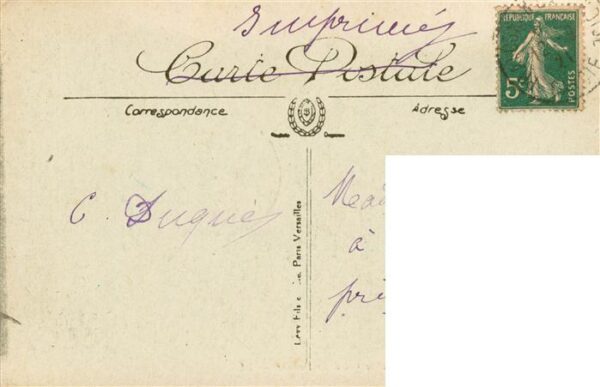 Imprimés
Carte Postale
RÉPUBLIQUE FRANÇAISE
5c
POSTES
Correspondance
Adresse
C. Duques
à
Lévy Fils Paris Versailles